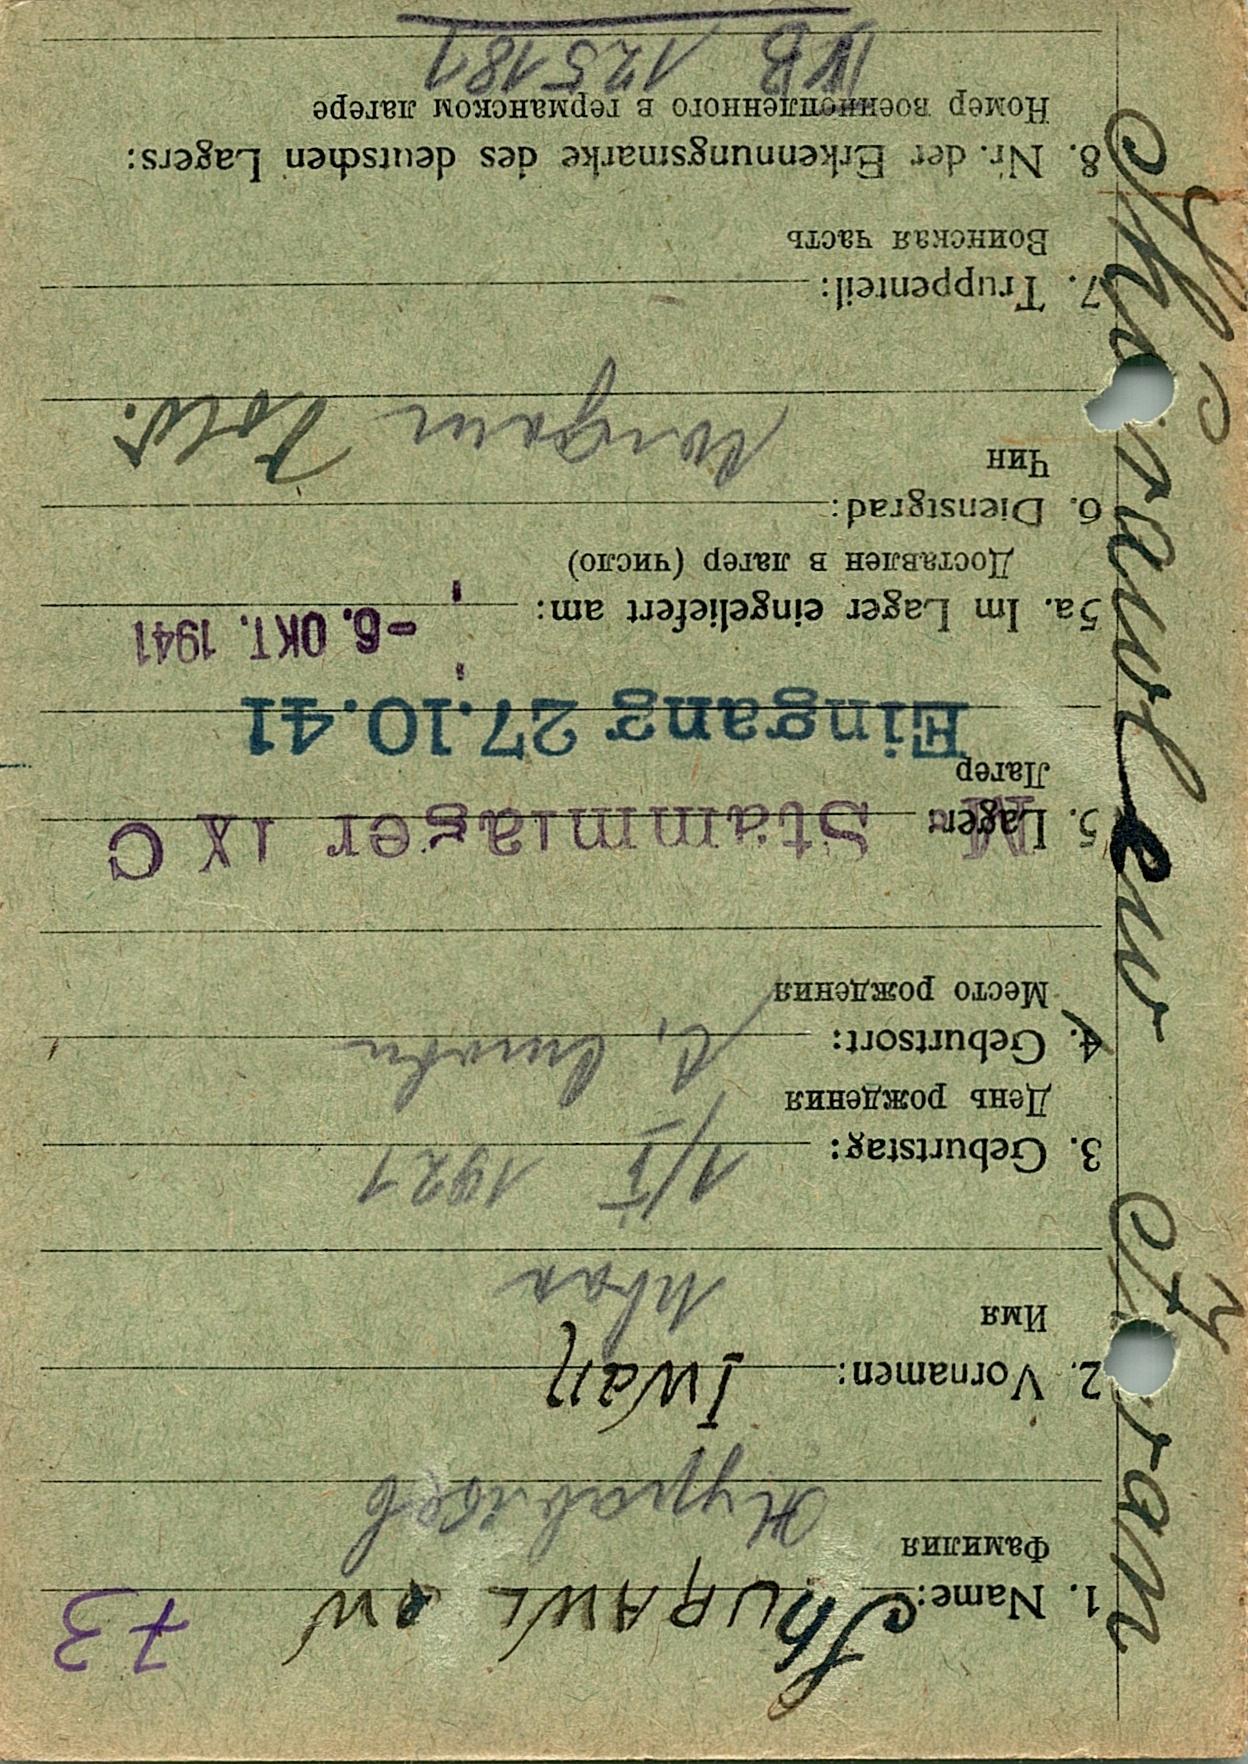 73
1. Name: ShURAWLEW
Фамилия Журавлев
2. Vornamen: Iwan
Имя Иван
3. Geburtstag: 1/I 1921
День рождения
4. Geburtsort: с.
Место рождения
5. Lager: M.-Stammlager IX C
Лагер
Eingang 27.10.41
5a. Im Lager eingeliefert am: -6. OKT. 1941
Доставлен в лагер (число)
6. Dienstgrad:
Чин Sold.
7. Truppenteil:
Воинская часть
8. Nr. der Erkennungsmarke des deutschen Lagers:
Номер военнопленного в германском лагере
IVB 125181
Shurawlew Iwan